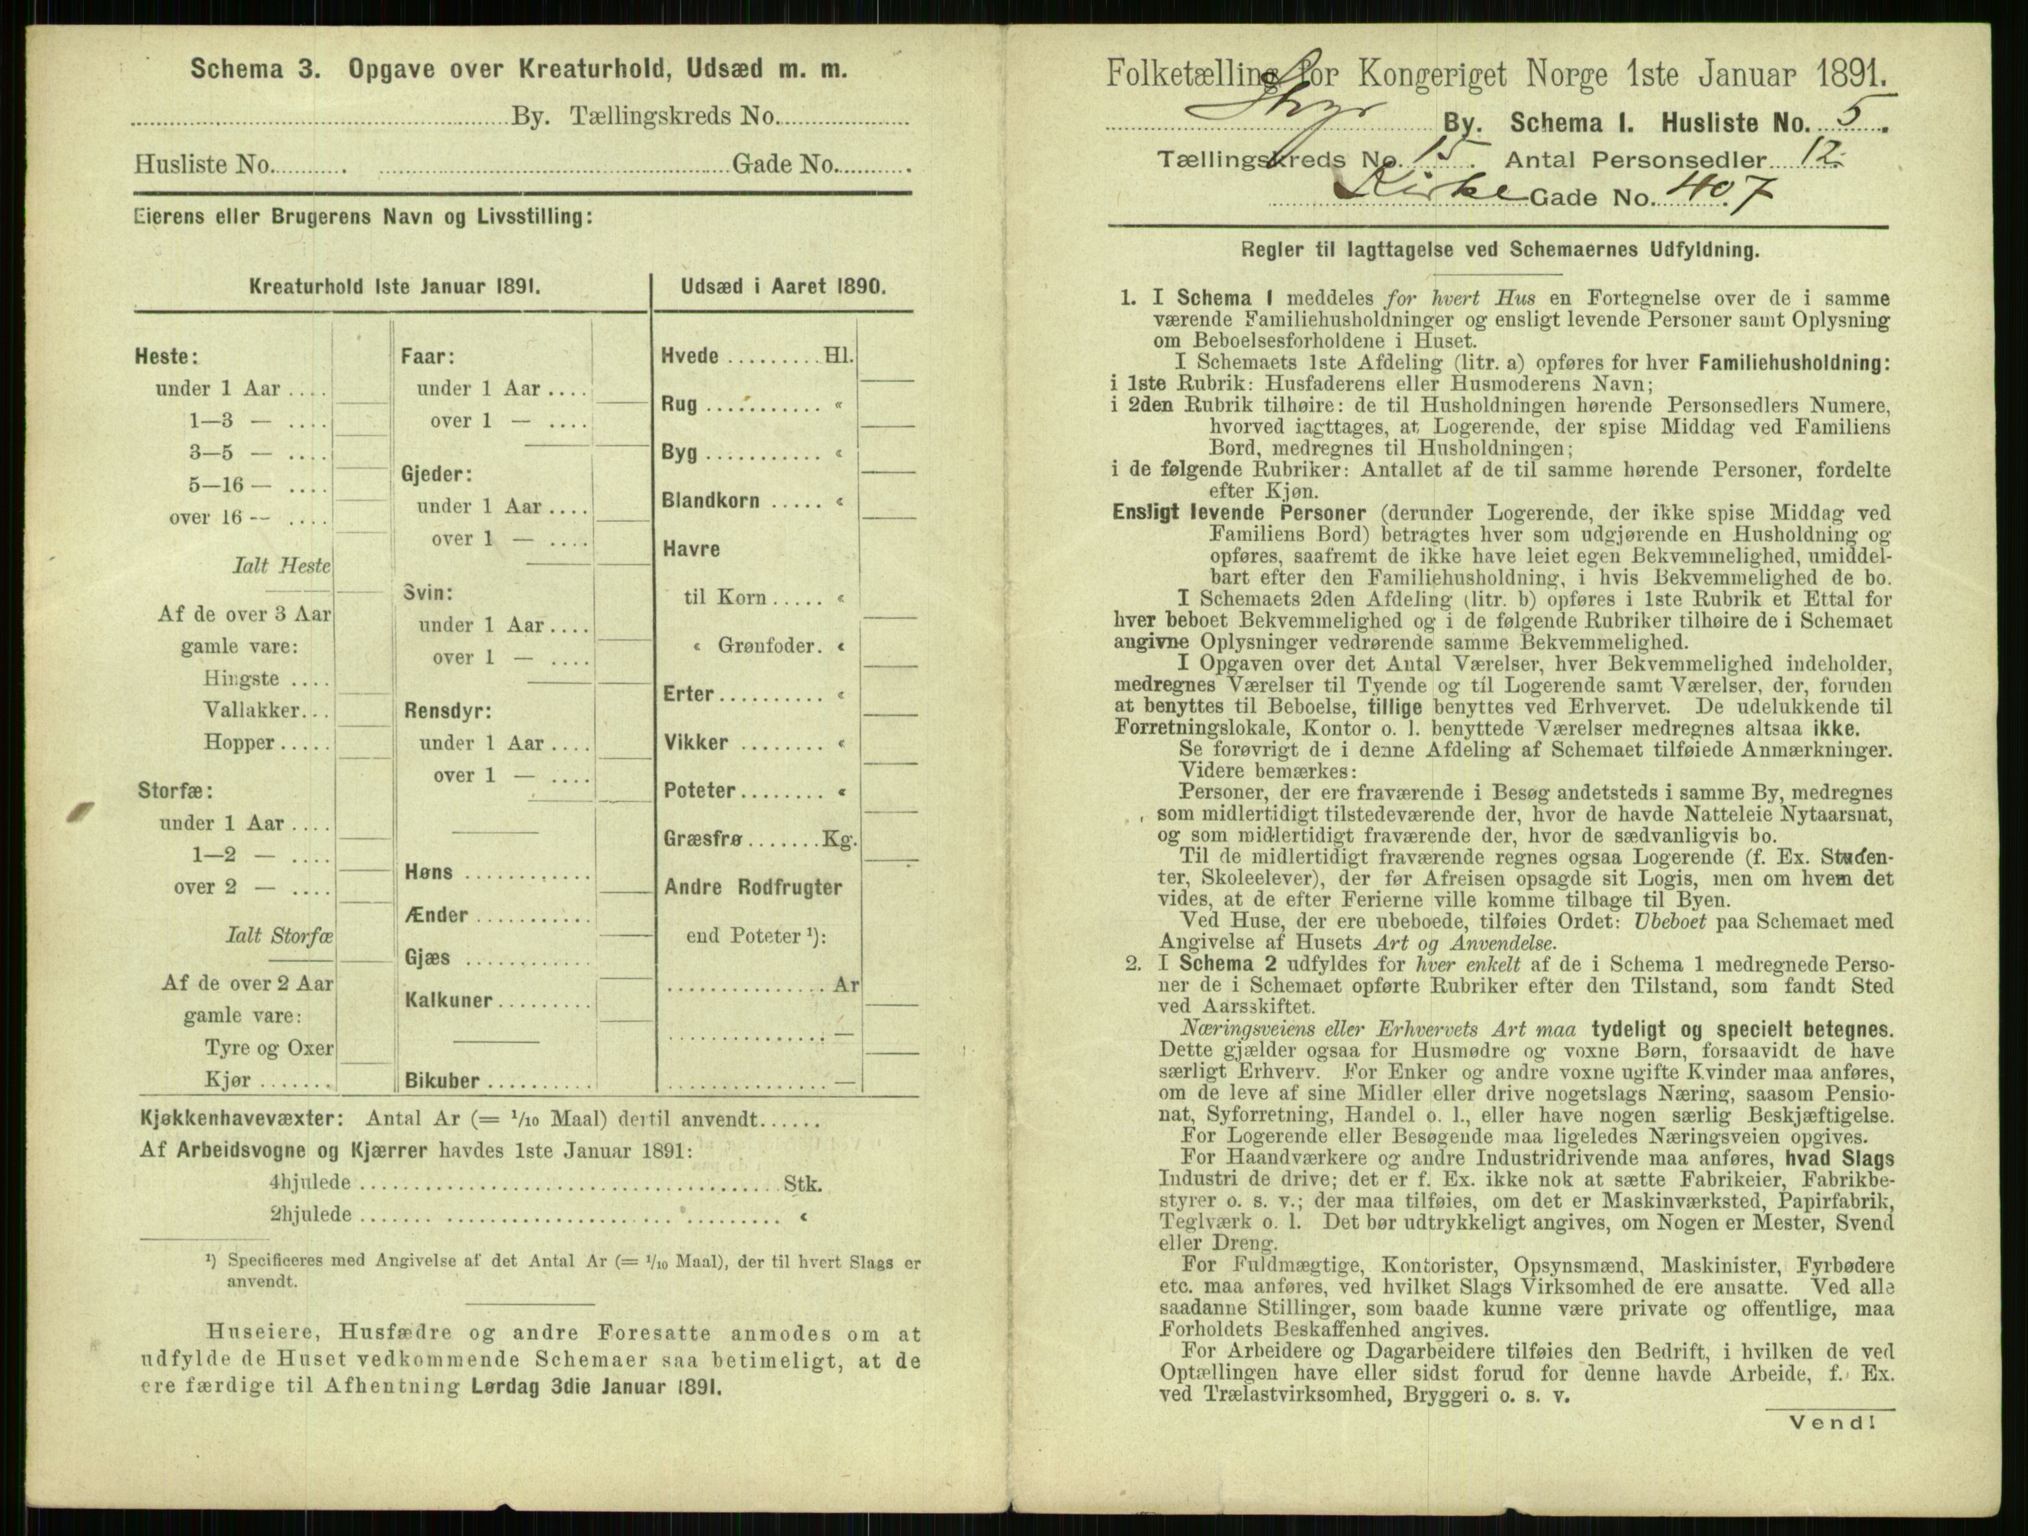 Schema 3. Opgave over Kreaturhold, Udsæd m. m.
By. Tællingskreds No.
Husliste No. Gade No.
Eierens eller Brugerens Navn og Livsstilling:
Kreaturhold 1ste Januar 1891.
Heste:
under 1 Aar ....
1—3 — ....
3—5 — ....
5—16 — ....
over 16 — ....
Ialt Heste
Af de over 3 Aar
gamle vare:
Hingste ....
Vallakker...
Hopper .....
Storfæ:
under 1 Aar ....
1—2 — ....
over 2 — ....
Ialt Storfæ
Af de over 2 Aar
gamle vare:
Tyre og Oxer
Kjør .......
Faar:
under 1 Aar ....
over 1 — ....
Gjeder:
under 1 Aar ....
over 1 — ....
Svin:
under 1 Aar ....
over 1 — ....
Rensdyr:
under 1 Aar ....
over 1 — ....
Høns ............
Ænder ...........
Gjæs ............
Kalkuner .........
Bikuber ..........
Udsæd i Aaret 1890.
Hvede ......... Hl.
Rug ........... «
Byg ........... «
Blandkorn ..... «
Havre
til Korn ..... «
« Grønfoder. «
Erter .......... «
Vikker ........ «
Poteter ........ «
Græsfrø ....... Kg.
Andre Rodfrugter
end Poteter ¹):
............... Ar
............... —
............... —
Kjøkkenhavevæxter: Antal Ar (= 1/10 Maal) dertil anvendt......
Af Arbeidsvogne og Kjærrer havdes 1ste Januar 1891:
4hjulede ...................................... Stk.
2hjulede ...................................... «
¹) Specificeres med Angivelse af det Antal Ar (= 1/10 Maal), der til hvert Slags er
anvendt.
Huseiere, Husfædre og andre Foresatte anmodes om at
udfylde de Huset vedkommende Schemaer saa betimeligt, at de
ere færdige til Afhentning Lørdag 3die Januar 1891.
Folketælling for Kongeriget Norge 1ste Januar 1891.
By. Schema 1. Husliste No. 5.
Tællingskreds No. 15. Antal Personsedler 12.
Kirke Gade No. 407
Regler til Iagttagelse ved Schemaernes Udfyldning.
1. I Schema 1 meddeles for hvert Hus en Fortegnelse over de i samme
værende Familiehusholdninger og ensligt levende Personer samt Oplysning
om Beboelsesforholdene i Huset.
I Schemaets 1ste Afdeling (litr. a) opføres for hver Familiehusholdning:
i 1ste Rubrik: Husfaderens eller Husmoderens Navn;
i 2den Rubrik tilhøire: de til Husholdningen hørende Personsedlers Numere,
hvorved iagttages, at Logerende, der spise Middag ved Familiens
Bord, medregnes til Husholdningen;
i de følgende Rubriker: Antallet af de til samme hørende Personer, fordelte
efter Kjøn.
Ensligt levende Personer (derunder Logerende, der ikke spise Middag ved
Familiens Bord) betragtes hver som udgjørende en Husholdning og
opføres, saafremt de ikke have leiet egen Bekvemmelighed, umiddel-
bart efter den Familiehusholdning, i hvis Bekvemmelighed de bo.
I Schemaets 2den Afdeling (litr. b) opføres i 1ste Rubrik et Ettal for
hver beboet Bekvemmelighed og i de følgende Rubriker tilhøire de i Schemaet
angivne Oplysninger vedrørende samme Bekvemmelighed.
I Opgaven over det Antal Værelser, hver Bekvemmelighed indeholder,
medregnes Værelser til Tyende og til Logerende samt Værelser, der, foruden
at benyttes til Beboelse, tillige benyttes ved Erhvervet. De udelukkende til
Forretningslokale, Kontor o. l. benyttede Værelser medregnes altsaa ikke.
Se forøvrigt de i denne Afdeling af Schemaet tilføiede Anmærkninger.
Videre bemærkes:
Personer, der ere fraværende i Besøg andetsteds i samme By, medregnes
som midlertidigt tilstedeværende der, hvor de havde Natteleie Nytaarsnat,
og som midlertidigt fraværende der, hvor de sædvanligvis bo.
Til de midlertidigt fraværende regnes ogsaa Logerende (f. Ex. Studen-
ter, Skoleelever), der før Afreisen opsagde sit Logis, men om hvem det
vides, at de efter Ferierne ville komme tilbage til Byen.
Ved Huse, der ere ubeboede, tilføies Ordet: Ubeboet paa Schemaet med
Angivelse af Husets Art og Anvendelse.
2. I Schema 2 udfyldes for hver enkelt af de i Schema 1 medregnede Perso-
ner de i Schemaet opførte Rubriker efter den Tilstand, som fandt Sted
ved Aarsskiftet.
Næringsveiens eller Erhvervets Art maa tydeligt og specielt betegnes.
Dette gjælder ogsaa for Husmødre og voxne Børn, forsaavidt de have
særligt Erhverv. For Enker og andre voxne ugifte Kvinder maa anføres,
om de leve af sine Midler eller drive nogetslags Næring, saasom Pensio-
nat, Syforretning, Handel o. l., eller have nogen særlig Beskjæftigelse.
For Logerende eller Besøgende maa ligeledes Næringsveien opgives.
For Haandværkere og andre Industridrivende maa anføres, hvad Slags
Industri de drive; det er f. Ex. ikke nok at sætte Fabrikeier, Fabrikbe-
styrer o. s. v.; der maa tilføies, om det er Maskinværksted, Papirfabrik,
Teglværk o. l. Det bør udtrykkeligt angives, om Nogen er Mester, Svend
eller Dreng.
For Fuldmægtige, Kontorister, Opsynsmænd, Maskinister, Fyrbødere
etc. maa anføres, ved hvilket Slags Virksomhed de ere ansatte. Ved alle
saadanne Stillinger, som baade kunne være private og offentlige, maa
Forholdets Beskaffenhed angives.
For Arbeidere og Dagarbeidere tilføies den Bedrift, i hvilken de ved
Optællingen have eller sidst forud for denne havde Arbeide, f. Ex.
ved Trælastvirksomhed, Bryggeri o. s. v.
Vend!